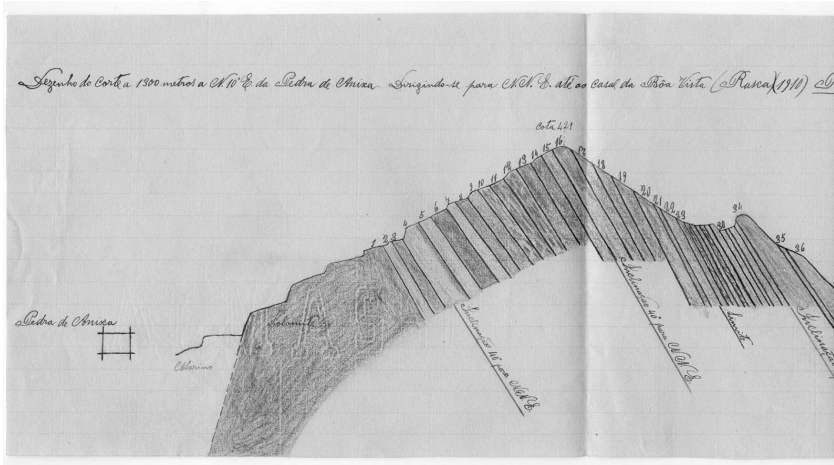 Dezenho do Corte a 1300 metros a N.10°E. da Pedra de Anixa Dirigindo-se para N.N.E. até ao Casal da Bôa Vista (Rasca) (1910)
Cota 421
1 2 3 4 5 6 7 8 9 10 11 12 13 14 15 16 17 18 19 20 21 22 23 30 34 35 36
Pedra de Anixa
Dolomite
Inclinação 40° para N.N.E.
Inclinação 40° para N.N.E.
Limite
Inclinação